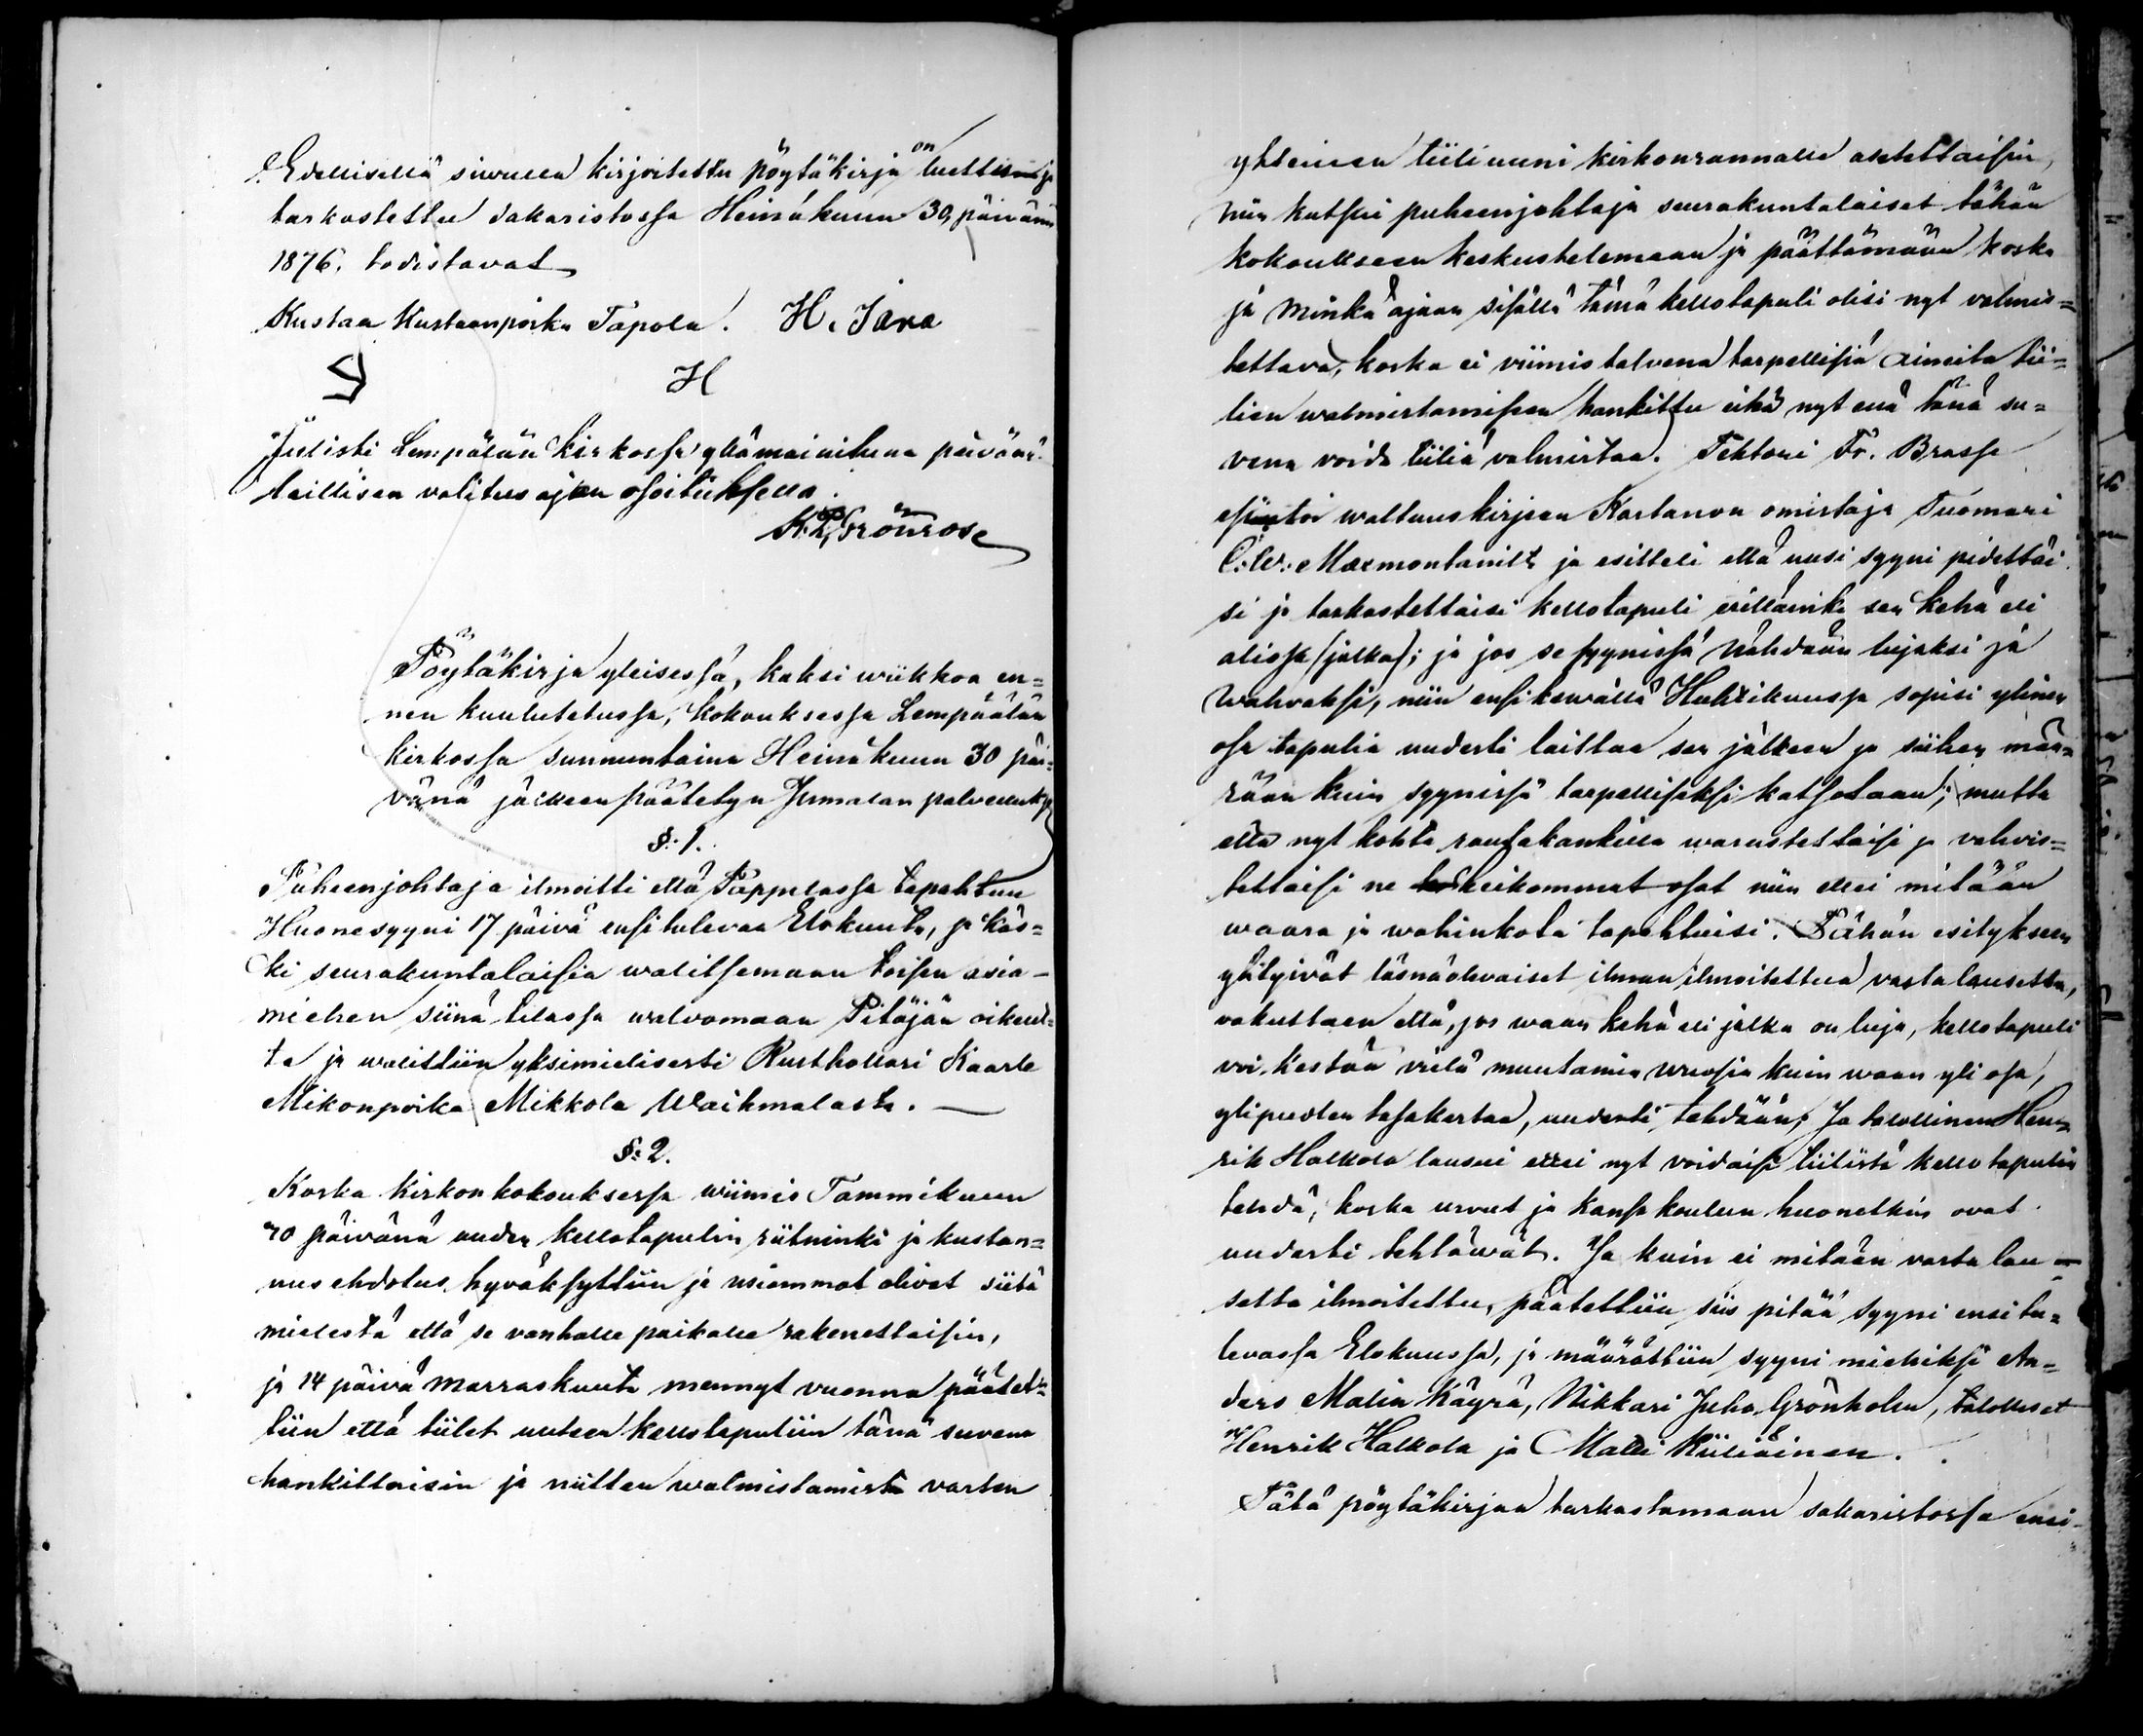 Edellisellä sivulla kirjoitettu pöytäkirja on luettu ja
tarkastettu sakaristossa Heinäkuun 30 päivänä
1876. todistavat
Kustaa Kustaanpoika Tapola. H. Jara
H
Julisti Lempäälän kirkossa yllämainittuna päivänä
laillisen valitus ajan osoituksella.
K. Grönroos
Pöytäkirja yleisessä, kaksi wiikkoa en=
nen kuulutetussa, kokouksessa Lempäälän
kirkossa sunnuntaina Heinäkuun 30 päi=
vänä jälkeen päätetyn Jumalan palveluksen
§. 1.
Puheenjohtaja ilmoitti että Pappilassa tapahtuu
Huonesyyni 17 päivä ensitulevaa Elokuuta, ja käs=
ki seurakuntalaisia walitsemaan toisen asia-
miehen siinä tilassa walvomaan Pitäjän oikeut=
ta ja walittiin yksimielisesti Rusthollari Kaarle
Mikonpoika Mikkola Waihmalasta. —
§. 2.
Koska kirkonkokouksessa wiimis Tammikuun
30 päivänä uuden kellotapulin riitninki ja kustan=
nus ehdotus hyväksyttiin ja usiammat olivat siitä
mielestä että se vanhalle paikalle rakenettaisiin,
ja 14 päivä Marraskuuta mennyt vuonna päätet=
tiin että tiilet uuteen kellotapuliin tänä suvena
hankittaisiin ja niitten walmistamista varten
yhteinen tiiliuuni kirkonrannalle asetettaisiin,
niin kutsui puheenjohtaja seurakuntalaiset tähän
kokoukseen keskustelemaan ja päättämään koska
ja minkä ajan sisällä tämä kellotapuli olisi nyt valmis=
tettava, koska ei viimis talvena tarpellisia aineita tii=
lien walmistamiseen hankittu eikä nyt enä tänä su=
vena voida tiiliä valmistaa. Tehtori Fr. Brasse
waltuuskirjeen Kartanon omistaja Tuomari
ja esitteli että uusi syyni pidettäi
si ja tarkastettaisi kellotapuli erillänik sen kehä eli
aliosa (jalka); ja jos se syynissä nähdään lujaksi ja
wahvaksi, niin ensikewällä Huhtikuussa sopisi ylinen
osa tapulia uudesti laittaa sen jälkeen ja siihen mää=
rään kuin syynissä tarpelliseksi katsotaan; mutta
että nyt kohta rautakankilla warustettaisi ja vahvis=
tettaisi ne heikommat osat niin ettei mitään
waara ja wahinkota tapahtuisi. Tähän esitykseen
yhtyivät läsnäolevaiset ilman ilmoitettua vastalausetta,
vakuttaen että, jos waan kehä eli jalka on luja, kellotapuli
voi kestää vielä muutamia wuosia kuin waan yli osa,
ylipuolen tasakertaa, uudesti tehdään; Ja talollinen Hen=
rik Halkola lausui ettei nyt voidaisi tiilistä kellotapulia
tehdä, koska urvut ja kansakoulun huonetkin ovat
uudesti tehtäwät. Ja kuin ei mitään vasta lau=
setta ilmoitettu, päätettiin siis pitää syyni ensi tu=
levassa Elokuussa, ja määrättiin syyni miehiksi An=
ders Matin Käyrä, Nikkari Juha Grönholm, talolliset
Henrik Halkola ja Matti Kiiliäinen.
Tätä pöytäkirjaa tarkastamaan sakaristossa ensi-